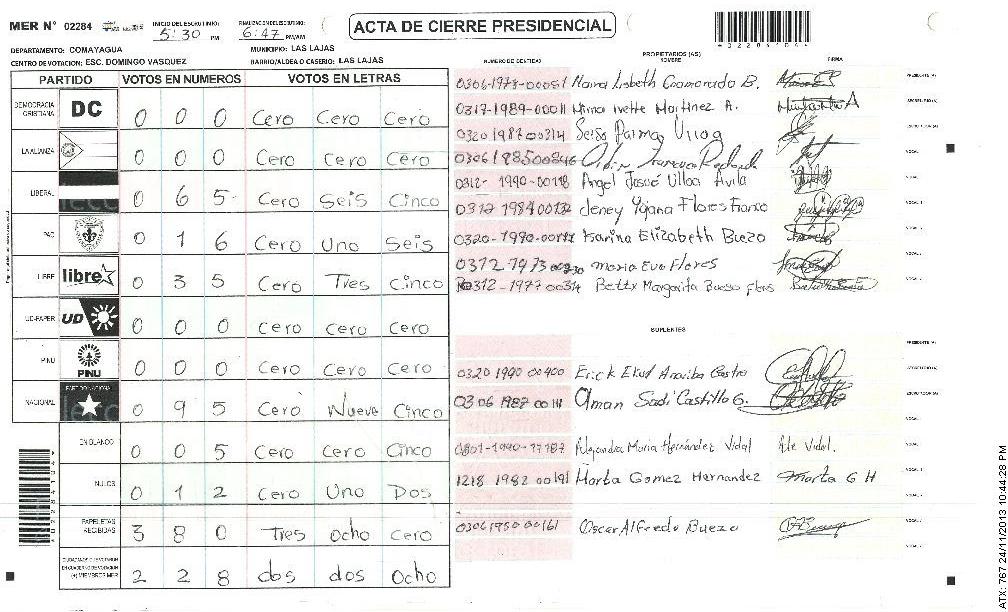 MER N° 02284
INICIO DEL ESCRUTINIO: 5:30 PM
FINALIZACION DEL ESCRUTINIO: 6:47 PM/AM
ACTA DE CIERRE PRESIDENCIAL
DEPARTAMENTO: COMAYAGUA
MUNICIPIO: LAS LAJAS
CENTRO DE VOTACION: ESC. DOMINGO VASQUEZ
BARRIO/ALDEA O CASERIO: LAS LAJAS
PARTIDO VOTOS EN NUMEROS VOTOS EN LETRAS
DEMOCRACIA CRISTIANA DC 0 0 0 Cero Cero Cero
LA ALIANZA 0 0 0 Cero Cero Cero
LIBERAL 0 6 5 Cero Seis Cinco
PAC 0 1 6 Cero Uno Seis
LIBRE libre 0 3 5 Cero Tres Cinco
UD-FAPER UD 0 0 0 Cero Cero Cero
PINU PINU 0 0 0 Cero Cero Cero
NACIONAL PARTIDO NACIONAL 0 9 5 Cero Nueve Cinco
EN BLANCO 0 0 5 Cero Cero Cinco
NULOS 0 1 2 Cero Uno Dos
PAPELETAS RECIBIDAS 3 8 0 Tres Ocho Cero
(+) MIEMBROS MER 2 2 8 dos dos Ocho
PROPIETARIOS (AS)
NUMERO DE IDENTIDAD NOMBRE FIRMA
0306-1973-00051 Lisbeth B. PRESIDENTE (A)
0317-1989-00011 Ivette Martinez A. SECRETARIO (A)
0320 1987 00314 Palma Ulloa ESCRUTADOR (A)
VOCAL
0312-1990-00118 Angel Josué Ulloa Avila
0312 1984 00132 Jeney Yojana Flores Franco
Karina Elizabeth Buezo
Maria Eva Flores
0312-1977-00314 Betty Margarita Bueso Flores
SUPLENTES
PRESIDENTE (A)
0320 1990 00400 Erick Castro SECRETARIO (A)
0306 1987 Sadi Castillo G. ESCRUTADOR (A)
Alejandra Maria Hernández Vidal Ale Vidal.
1218 1982 00191 Marta Gomez Hernandez Marta G H
0306 1950 00161 Oscar Alfredo Buezo
ATX: 767 24/11/2013 10:44:28 PM